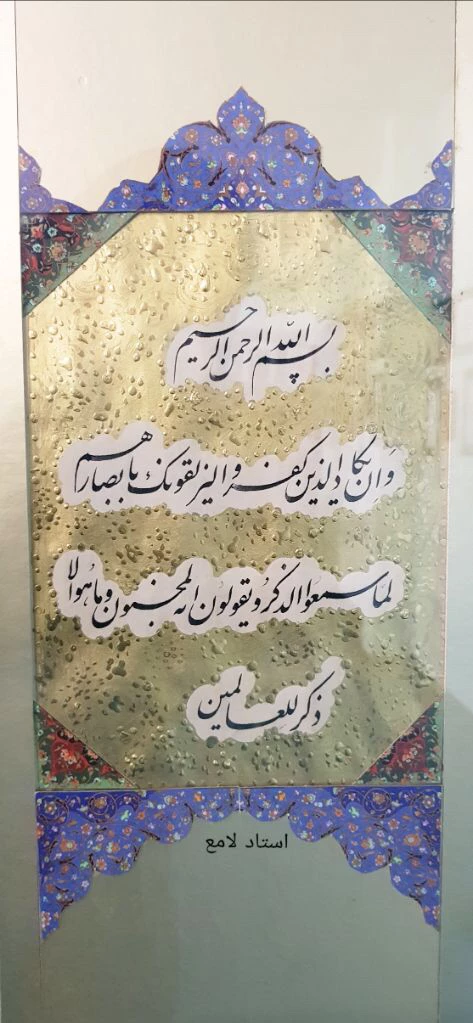 بسم الله الرحمن الرحیم
وَان یکاد الذین کفروا لیزلقونک بابصارهم
لما سمعوا الذکر و یقولون انه لمجنون و ما هو الا
ذکر للعالمین
استاد لامع